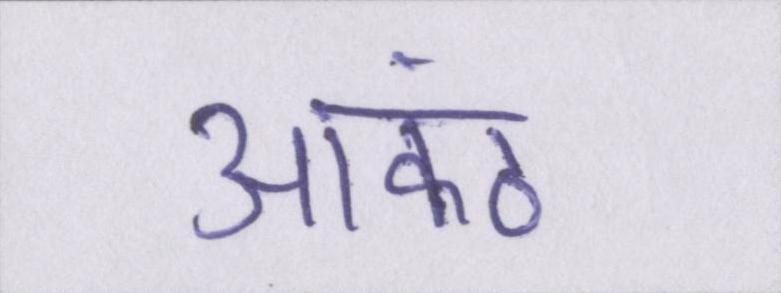 आकंठ